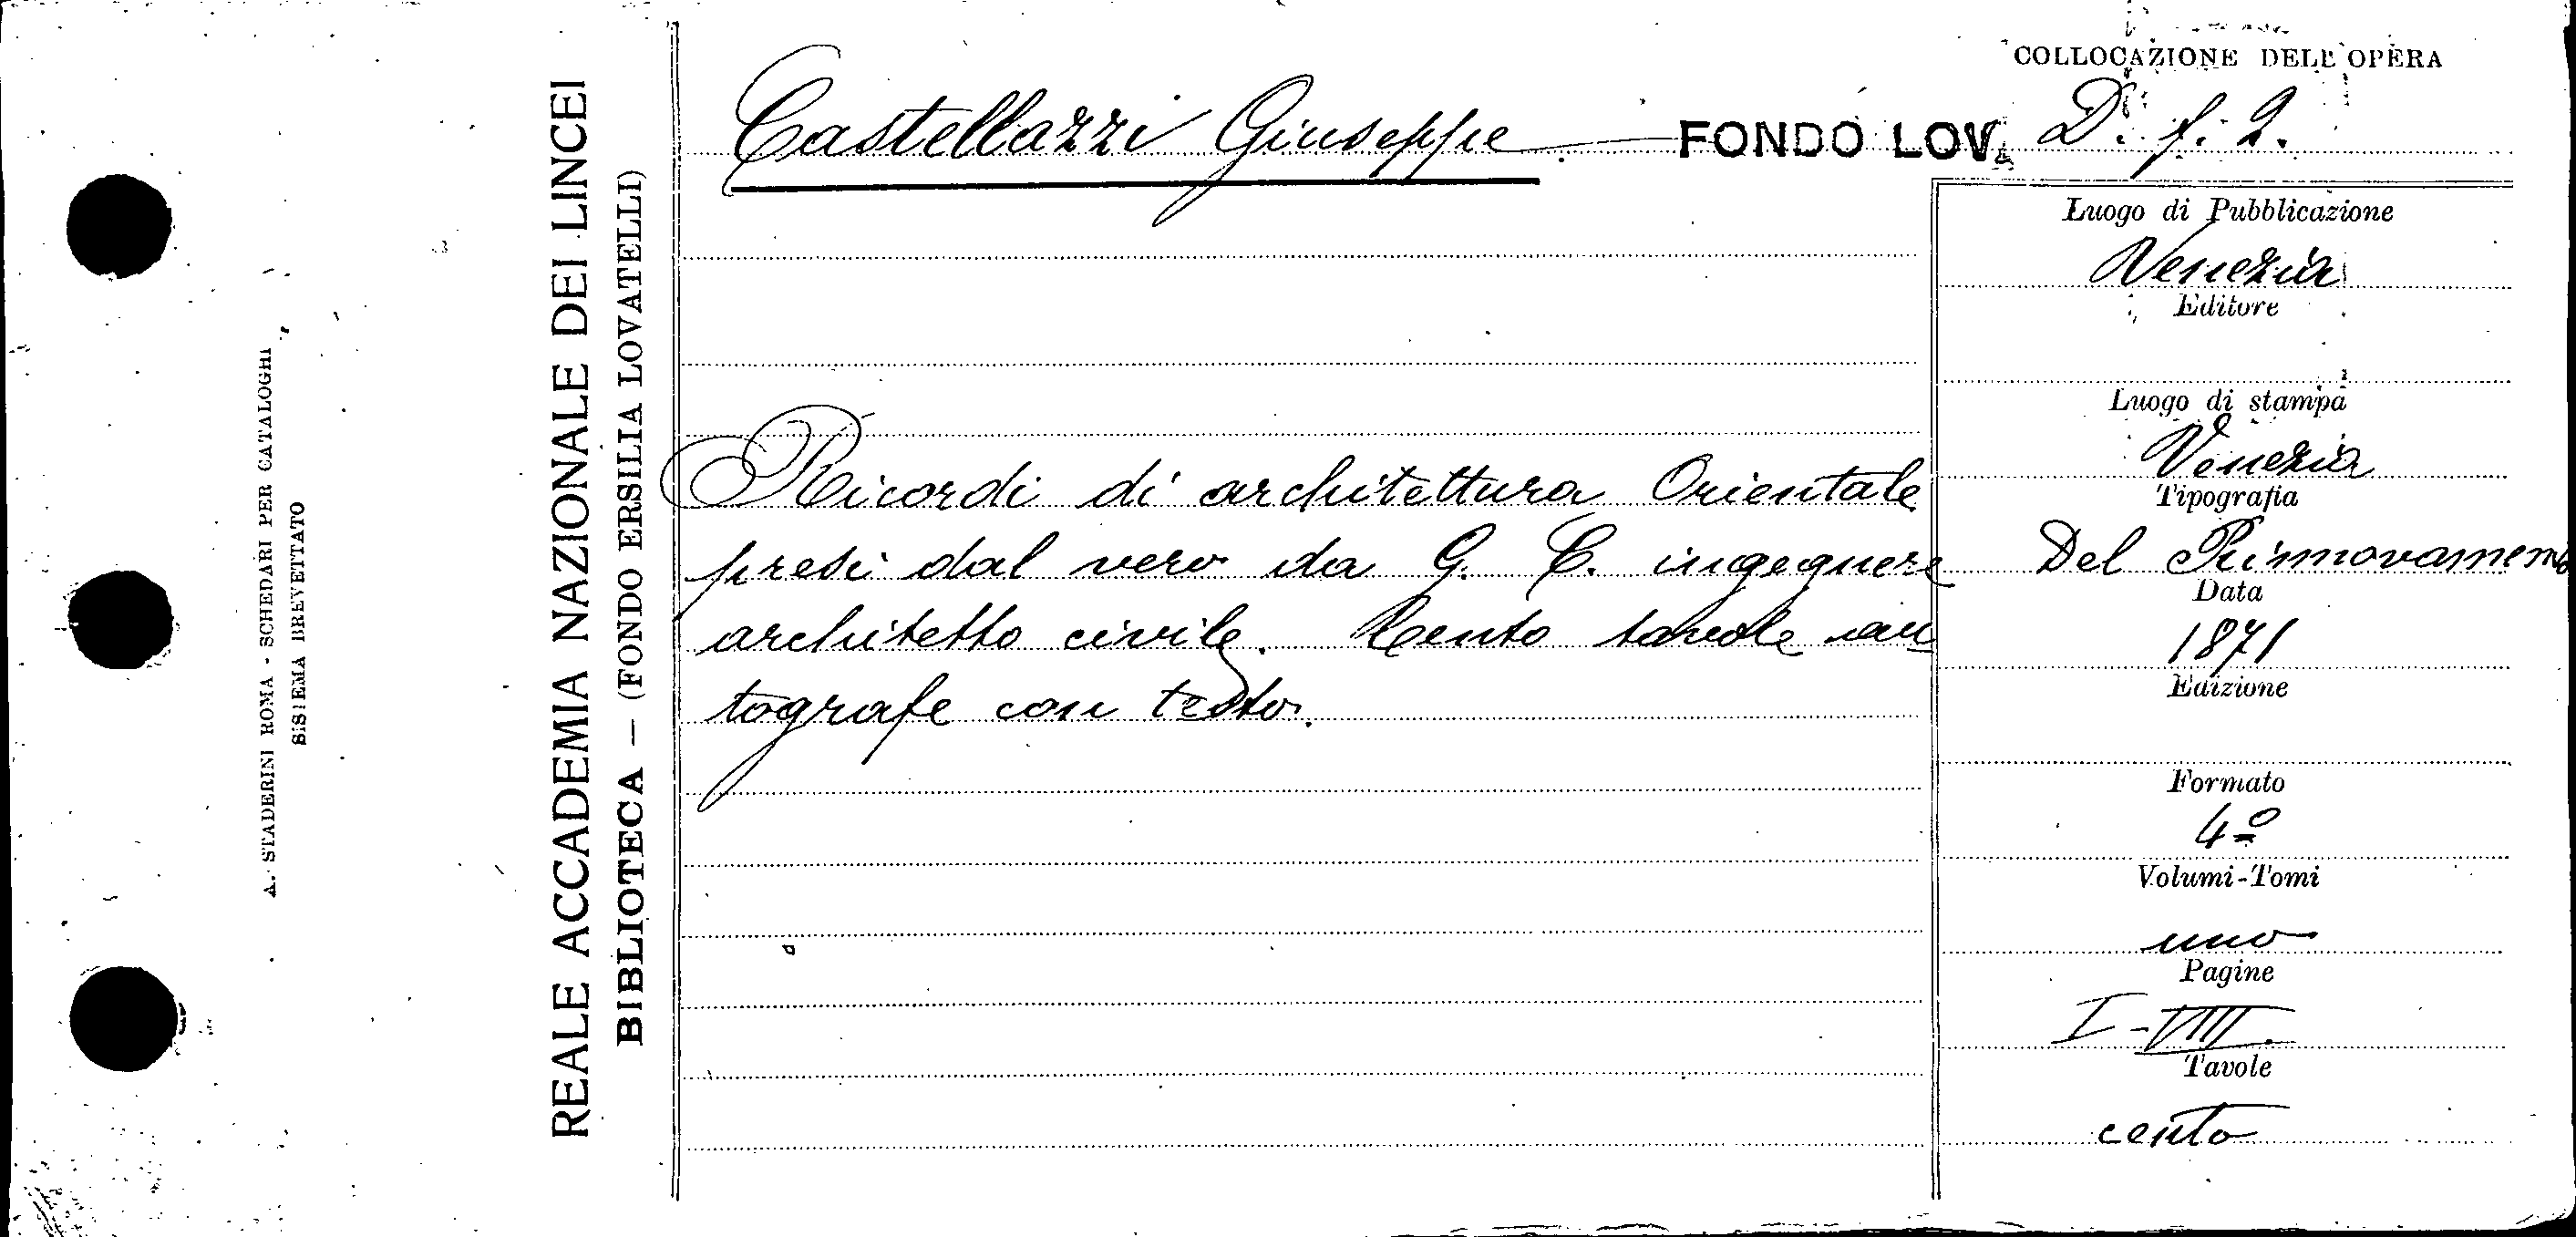 A. STADERINI ROMA - SCHEDARI PER CATALOGHI
SISTEMA BREVETTATO
REALE ACCADEMIA NAZIONALE DEI LINCEI
BIBLIOTECA — (FONDO ERSILIA LOVATELLI)
COLLOCAZIONE DELL'OPERA
Castellazzi Giuseppe — FONDO LOV. D. f. 2.
Ricordi di architettura Orientale
presi dal vero da G. C. ingegnere
architetto civile. Cento tavole au
tografe con testo.
Luogo di Pubblicazione
Venezia
Editore
Luogo di stampa
Venezia
Tipografia
Del Rinnovamento
Data
1871
Edizione
Formato
4º
Volumi-Tomi
uno
Pagine
I-VIII.
Tavole
cento